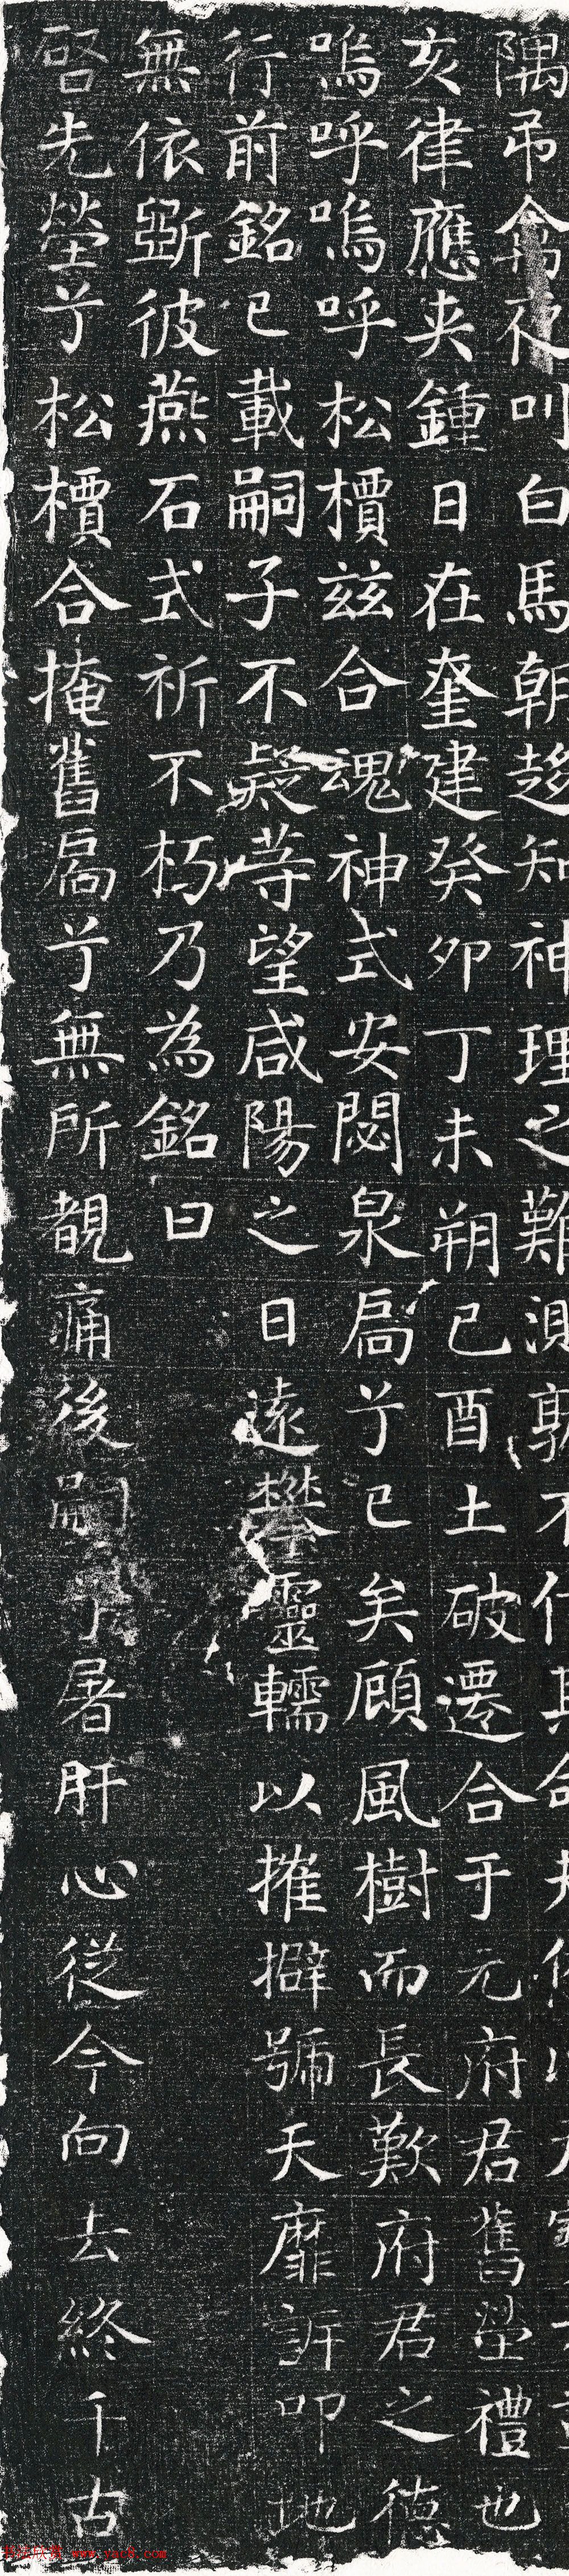 隅吊禽夜叫白馬朝趍知神理之難測孰不
亥律應夾鍾日在奎建癸卯丁未朔己酉土破遷合于元府君舊塋禮也
嗚呼嗚呼松檟茲合魂神式安閟泉扃兮已矣顧風樹而長歎府君之德
行前銘已載嗣子不疑等望咸陽之日遠攀靈轜以摧擗號天靡訴叩地
無依斲彼燕石式祈不朽乃為銘曰
啓先塋兮松檟合掩舊扃兮無所覩痛後嗣兮屠肝心從今向去終千古
www.yac8.com